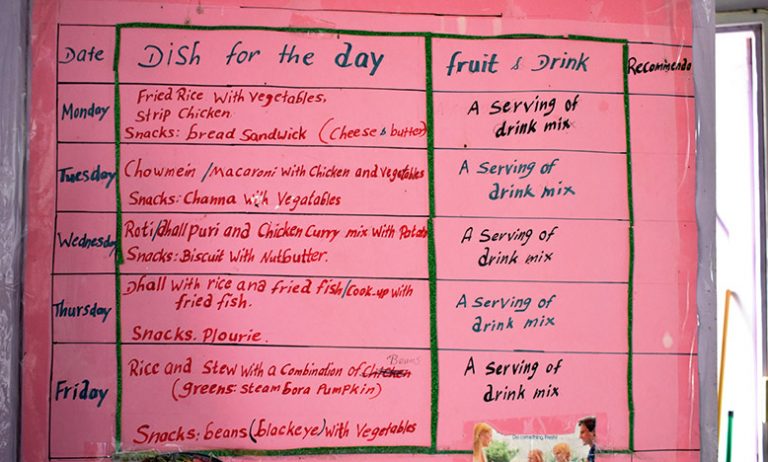 Date Dish for the day fruit & Drink Recommenda
Monday
Fried Rice With Vegetables,
Strip Chicken.
Snacks: bread Sandwick (Cheese & butter)
A Serving of
drink mix
Tuesday
Chowmein /Macaroni With Chicken and Vegetables
Snacks: Channa With Vegatables
A Serving of
drink mix
Wednesday
Roti/dhall puri and Chicken Curry mix With Potato
Snacks: Biscuit With Nutbutter.
A Serving of
drink mix
Thursday
Dhall with rice and fried fish/Cook-up with
fried fish.
Snacks. Plourie.
A Serving of
drink mix
Friday
Beans
Rice and Stew With a Combination of Chicken
(greens: steam bora Pumpkin)
Snacks: beans (blackeye) With Vegetables
A Serving of
drink mix